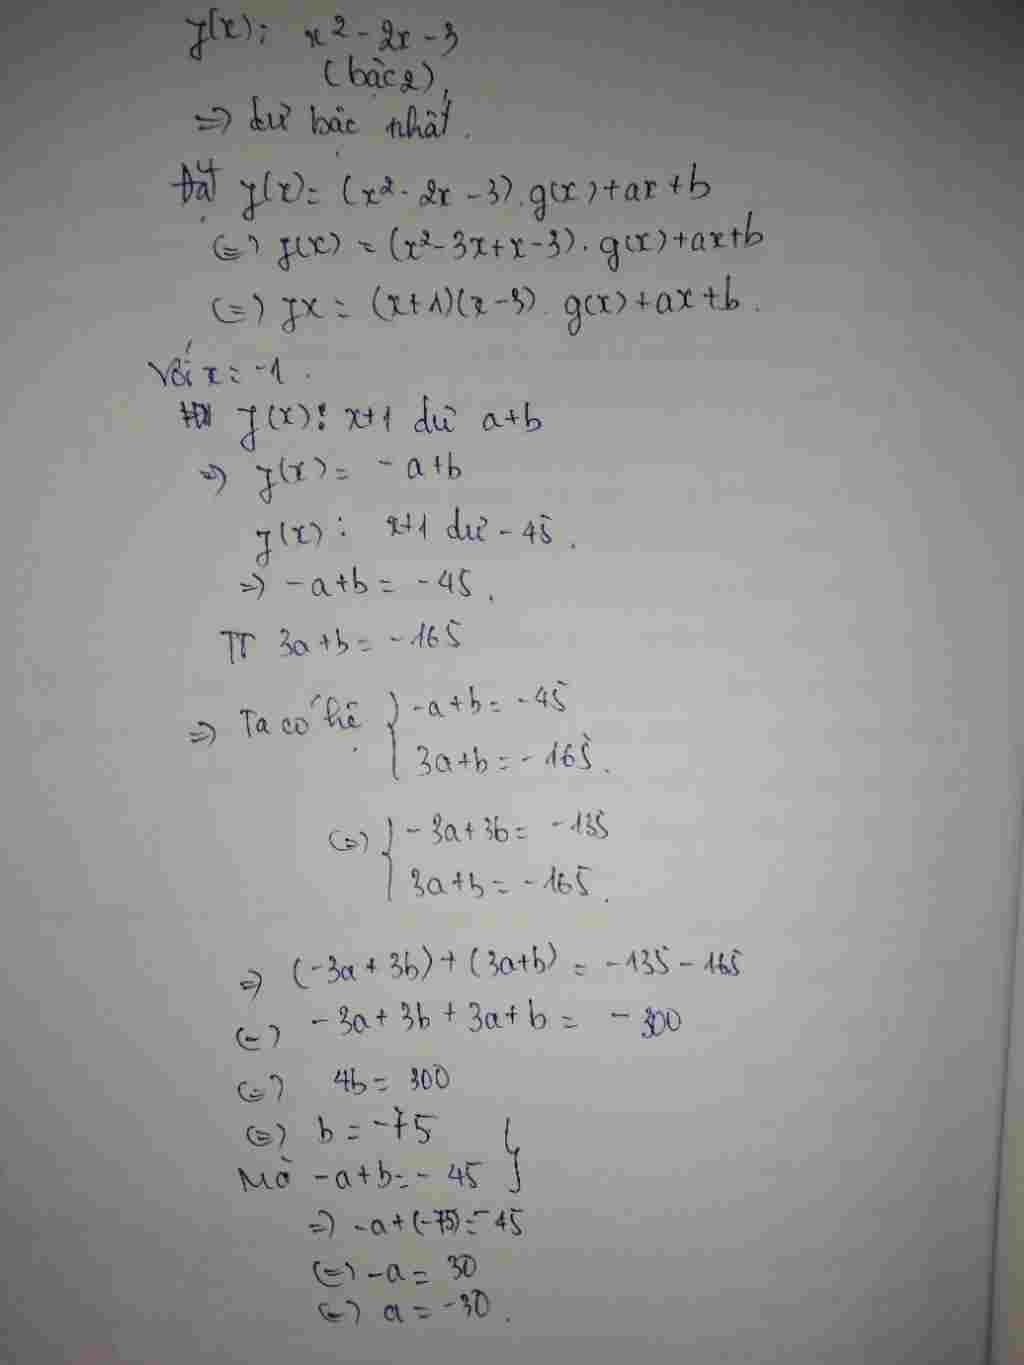 f(x): x² - 2x - 3
(bậc 2)
=> dư bậc nhất.
Đặt f(x) = (x² - 2x - 3). g(x) + ax + b
(=) f(x) = (x² - 3x + x - 3). g(x) + ax + b
(=) fx = (x+1)(x-3). g(x) + ax + b.
Với x = -1.
f(x): x+1 dư a+b
=> f(x) = -a+b
f(x): x+1 dư -45.
=> -a+b = -45.
TT 3a+b = -165
=> Ta có hệ { -a+b = -45
3a+b = -165.
(=) { -3a+3b = -135
3a+b = -165.
=> (-3a + 3b) + (3a+b) = -135 - 165
(=) -3a + 3b + 3a + b = -300
(=) 4b = 300
(=) b = -75 }
Mà -a+b = -45
=> -a+(-75) = -45
(=) -a = 30
(=) a = -30.